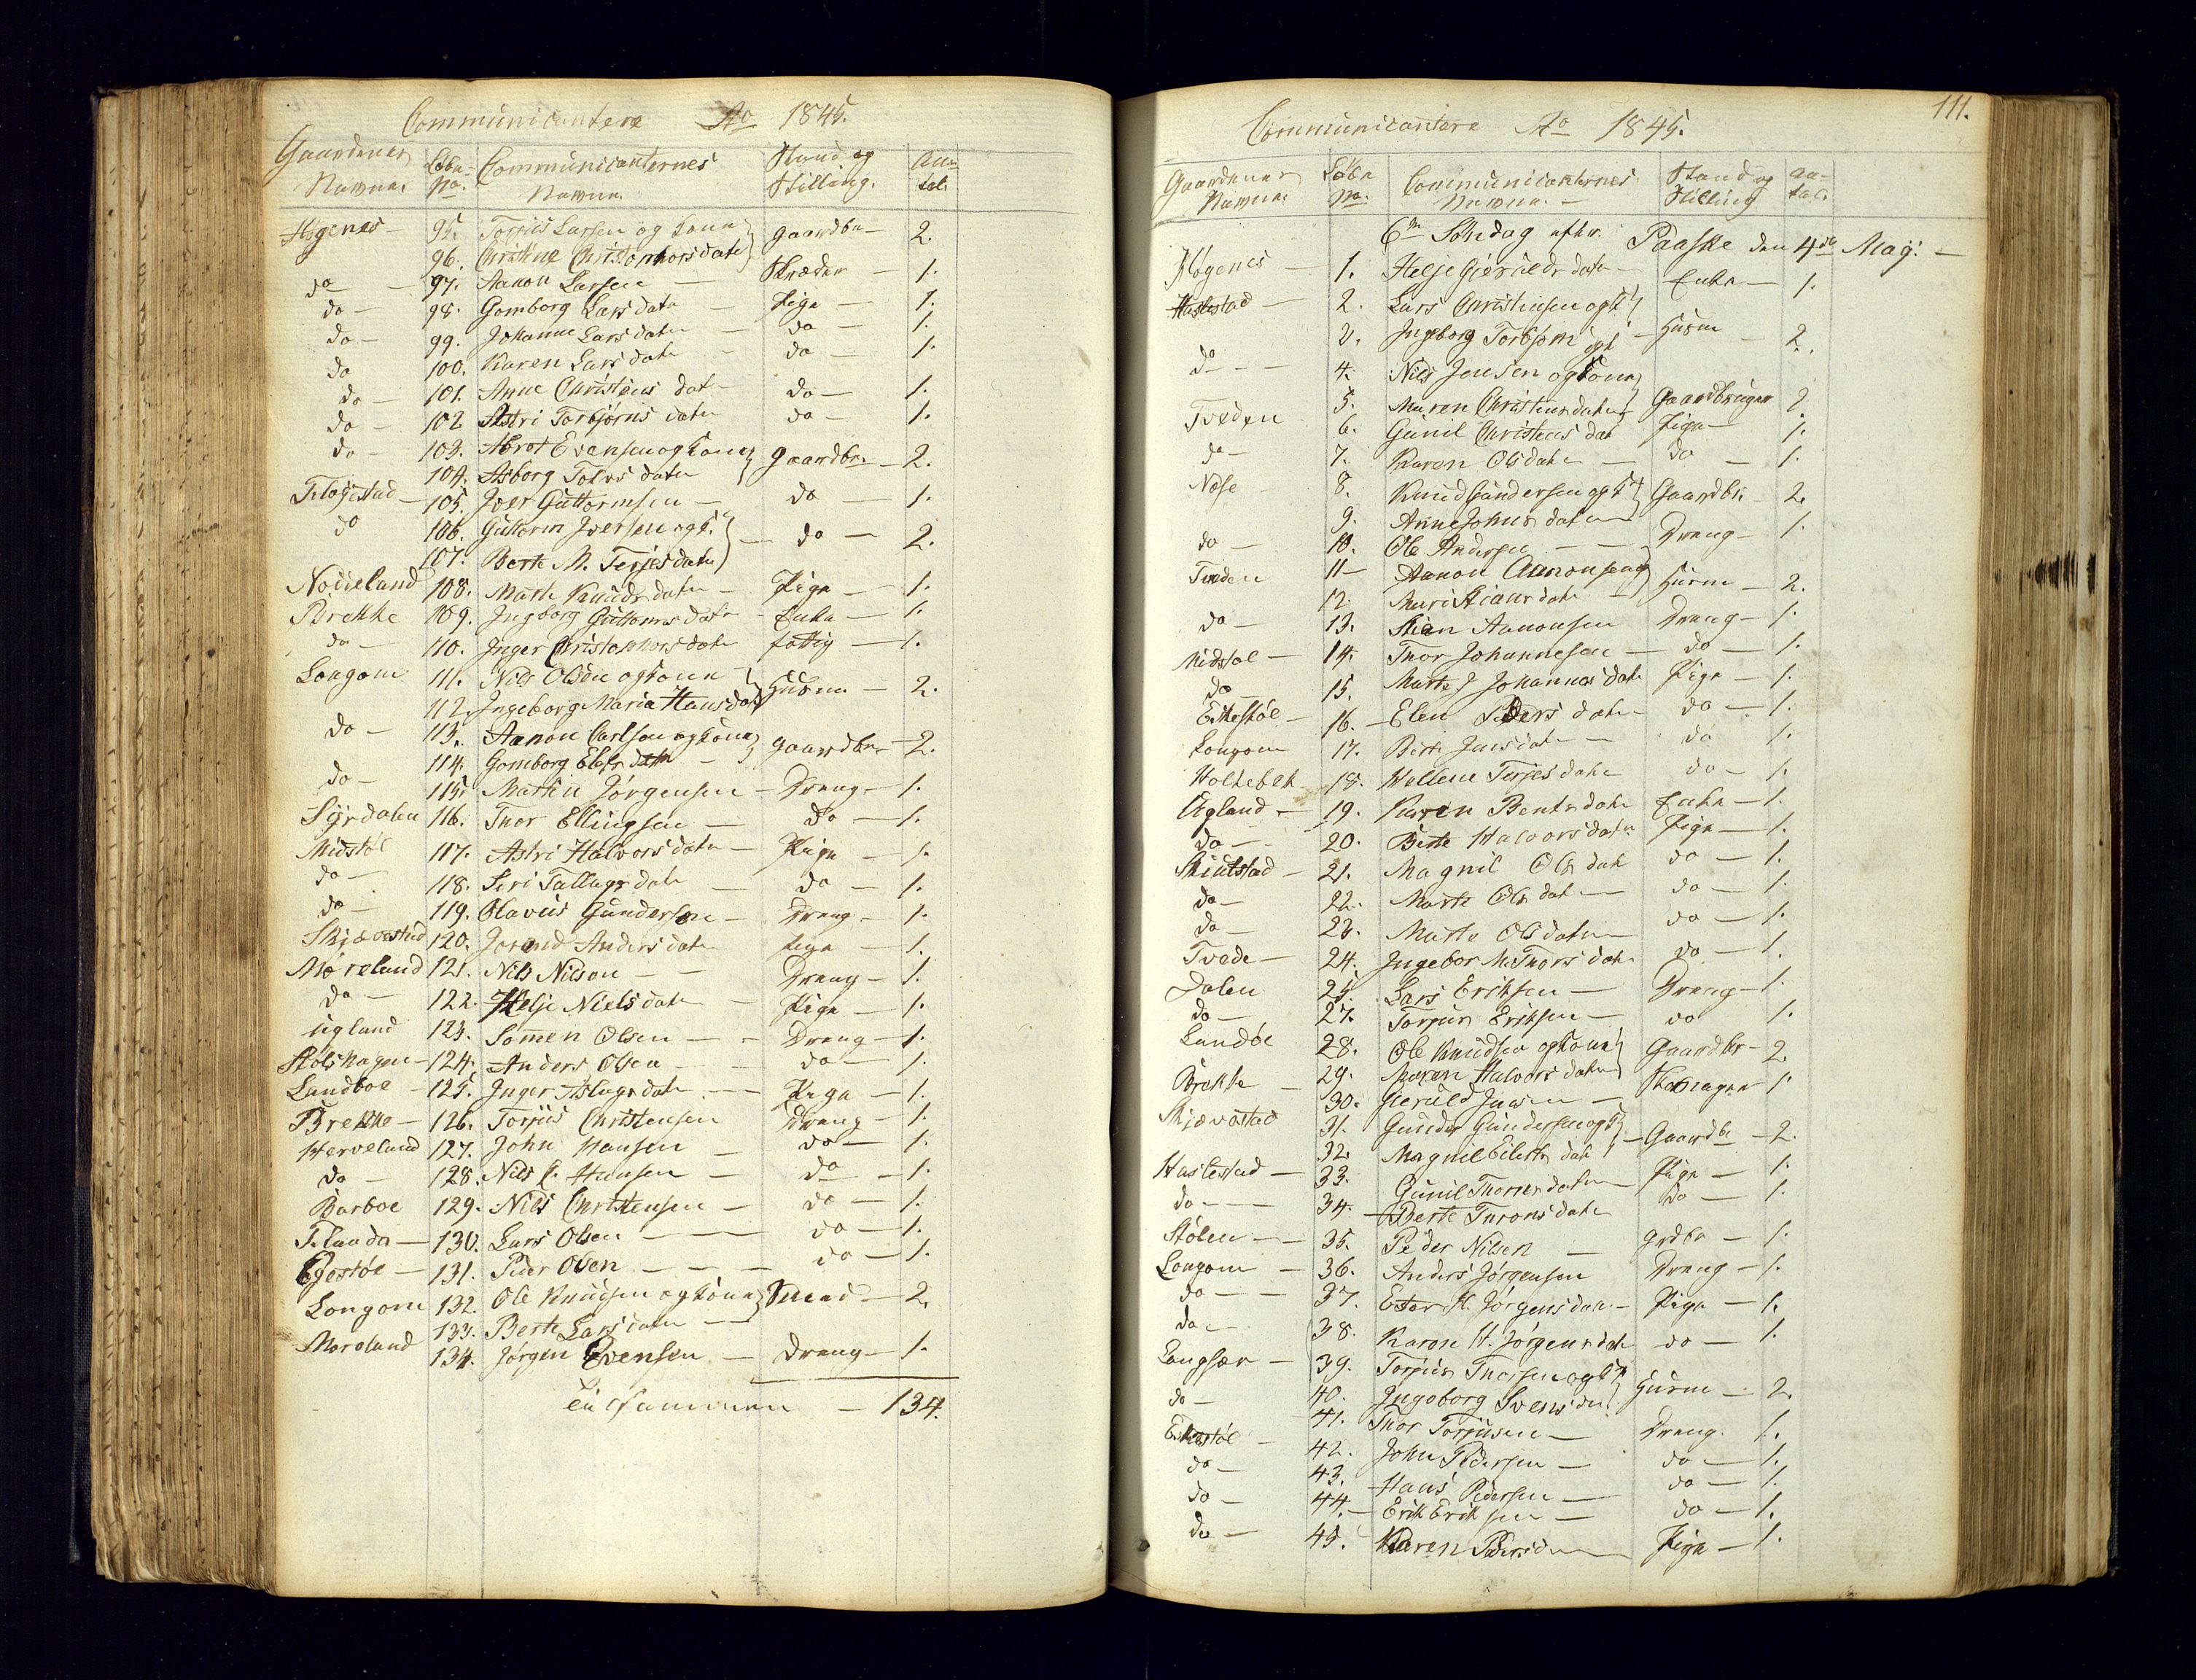 Communicantere Ao 1845.
Gaardenes Navne. Löbe No. Communicanternes Navne. Stand og Stilling. Antal.
Högenes 95. Torjus Larsen og Kone gaardbr 2.
96. Christine Christophersdatr
do 97. Aanon Larsen Skræder 1.
do 98. Gomborg Larsdatr Pige 1.
do 99. Johanne Larsdatr do 1.
do 100. Karen Larsdatr do 1.
do 101. Anne Christens datr do 1.
do 102 Astri Torbjörns datr do 1.
do 103. Evensen og Kone gaardbr. 2.
104. Asborg datr
105. Iver Guttormsen do 1.
do 106. Guttorm Iversen og K. do 2.
107. Berte M. Terjesdatr
108. Marte Knudsdatr Pige 1.
Brekke 109. Ingborg Guttormsdatr Enke 1.
do 110. Inger Christophersdatr fattig 1.
Longom 111. Nils Olsen og Kone Husm 2.
112. Ingeborg Maria Hansdatr
do 113. Aanon Carlsen og Kone gaardbr 2.
114. Gomborg Elefsdatr
do 115. Martin Jörgensen Dreng 1.
116. Thor Ellingsen do 1.
Midstöl 117. Astri Halvorsdatr Pige 1.
do 118. Siri Tallagsdatr do 1.
do 119. Olavus Gundersen Dreng 1.
Skjævestad 120. Jorand Andersdatr Pige 1.
Moreland 121. Nils Nilson Dreng 1.
do 122. Helje Nielsdatr Pige 1.
ugland 123. Sömen Olsen Dreng 1.
Stölshagen 124. Anders Olsen do 1.
Landboe 125. Inger Aslagsdatr Pige 1.
Brekke 126. Torjus Christensen Dreng 1.
Herveland 127. John Hansen do 1.
do 128. Nils C. Hansen do 1.
Barboe 129. Nils Christensen do 1.
130. Lars Olsen do 1.
Egestöl 131. Peder Olsen do 1.
Longom 132. Ole Knudsen og Kone Smed 2.
133. Berte Larsdatr
Moreland 134. Jörgen Evensen Dreng 1.
Tilsammen 134.
111.
Communicantere Ao 1845.
Gaardenes Navne. Löbe No. Communicanternes Navne. Stand og Stilling Antal.
6te Söndag efter Paaske den 4de Maj.
Högenes 1. Helje Gieruldsdatr Enke 1.
Hastestad 2. Lars Christensen og K
3. Ingeborg Torbjörn Husm 2.
do 4. Nils Jensen og Kone
5. Maren Christensdatr Gaardbruger 2
Tveden 6. Gunil Christens dat Pige 1.
do 7. Karen Olsdatr do 1.
Næse 8. Knud Gundersen og K Gaardbr. 2.
9. Anne Johnsdatr
do 10. Ole Andersen Dreng 1.
Tveden 11 Aanon Aanonsen og Husm 2.
12. Mari Stiansdatr
do 13. Stian Aanonsen Dreng 1.
Midstöl 14. Thor Johannesen do 1.
do 15. Marte J Johannesdatr Pige 1.
Eikestöl 16. Elen Peders datr do 1.
Longom 17. Berte Jensdatr do 1.
Holtebek 18. Hellene Terjesdatr do 1.
Ugland 19. Karen Bentsdatr Enke 1.
do 20. Birte Halvorsdatr Pige 1.
21. Magnil Olsdatr do 1.
do 22. Marte Olsdatr do 1.
do 23. Marte Olsdatr do 1.
Tvede 24. Ingebor M. Thorsdatr do 1.
Dalen 25. Lars Eriksen Dreng 1.
do 27. Torjus Eriksen do 1.
Landöe 28. Ole Knudsen og Kone Gaardbr 2.
29. Maren Halvorsdatr
Brekke 30. Gieruld Jensen Skomager 1.
Skjævestad 31. Gunder Gundersen og K Gaardbr 2.
32. Magnil Eilertsdatr
Hastestad 33. Gunil Thorsensdatr Pige 1.
do 34. Berte Thronsdatr do 1.
Stölen 35. Peder Nilsen grdbr 1.
Longom 36. Anders Jörgensen Dreng 1.
do 37. Ester H. Jörgensdatr Pige 1.
do 38. Karen H. Jörgensdatr do 1.
Langsæv 39. Torjus Thorsen og K Husm 2.
do 40. Ingeborg Svensdtr
41. Thor Torjusen Dreng 1.
Eikestöl 42. John Pedersen do 1.
do 43. Hans Pedersen do 1.
do 44. Erik Eriksen do 1.
do 45. Karen Pedersd Pige 1.